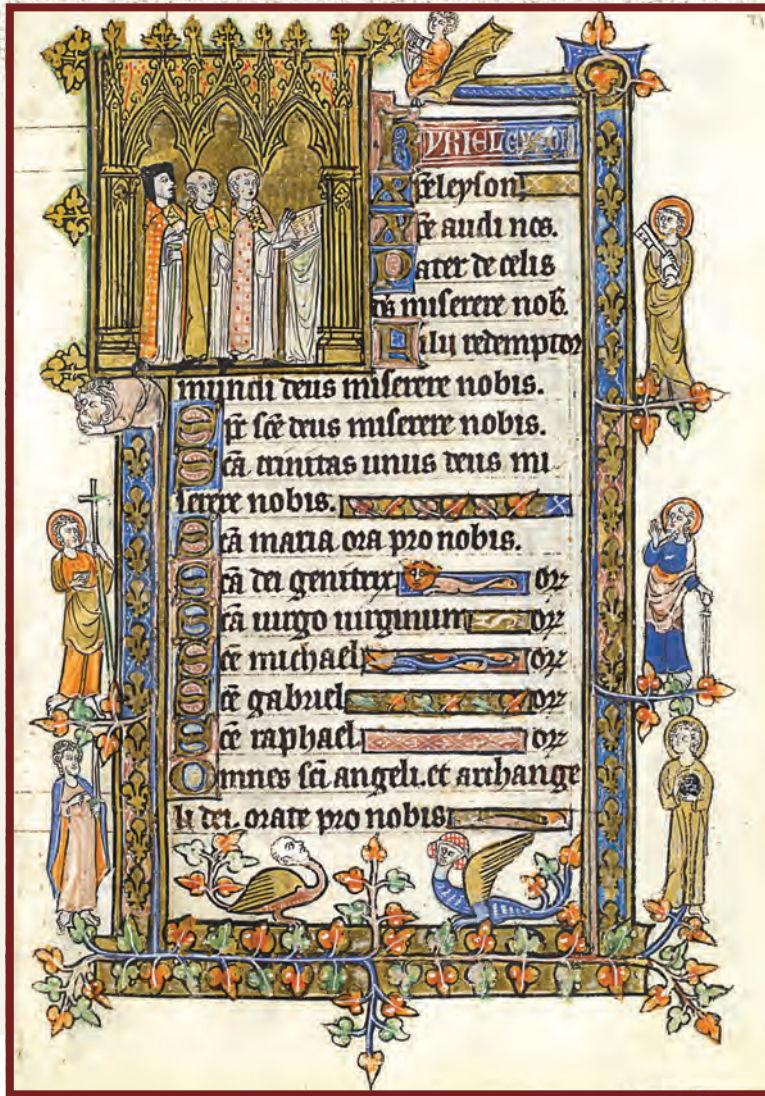 KYRIEL eyson
xp̄eleyson
xp̄e audi nos.
Pater de celis
ds̄ miserere nob̄.
Fili redemptor
mundi deus miserere nobis.
Sp̄c sc̄e deus miserere nobis.
Sc̄a trinitas unus deus mi
serere nobis.
Sc̄a maria ora pro nobis.
Sc̄a dei genitrix or
Sc̄a uirgo uirginum or
Sc̄e michael or
Sc̄e gabriel or
Sc̄e raphael or
Omnes sc̄i angeli. et archange
li dei. orate pro nobis